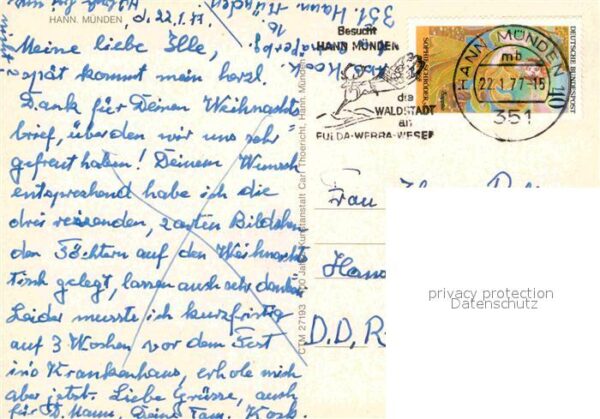 HANN. MÜNDEN
d. 22.1.77
Meine liebe Ille,
spät kommt mein herzl.
Dank für Deinen Weihnachts
brief, über den wir uns sehr
gefreut haben! Deinem Wunsch
entsprechend habe ich die
drei reizenden, zarten Bildchen
den Töchtern auf den Weihnacht
tisch gelegt, lassen auch sehr danken
Leider musste ich kurzfristig
auf 3 Wochen vor dem Fest
ins Krankenhaus, erhole mich
aber jetzt. Liebe Grüsse, auch
für D. Mann, Deine Fam. Kosk
351. Hann.
Besucht
HANN MÜNDEN
die
WALDSTADT
an
FULDA-WERRA-WESER
HANN MÜNDEN
mb
22.-1.77-15
351
DEUTSCHE BUNDESPOST
40
CTM 27193
100 Jahre Kunstanstalt Carl Thoericht, Hann. Münden
Frau
D.D.R.
privacy protection
Datenschutz